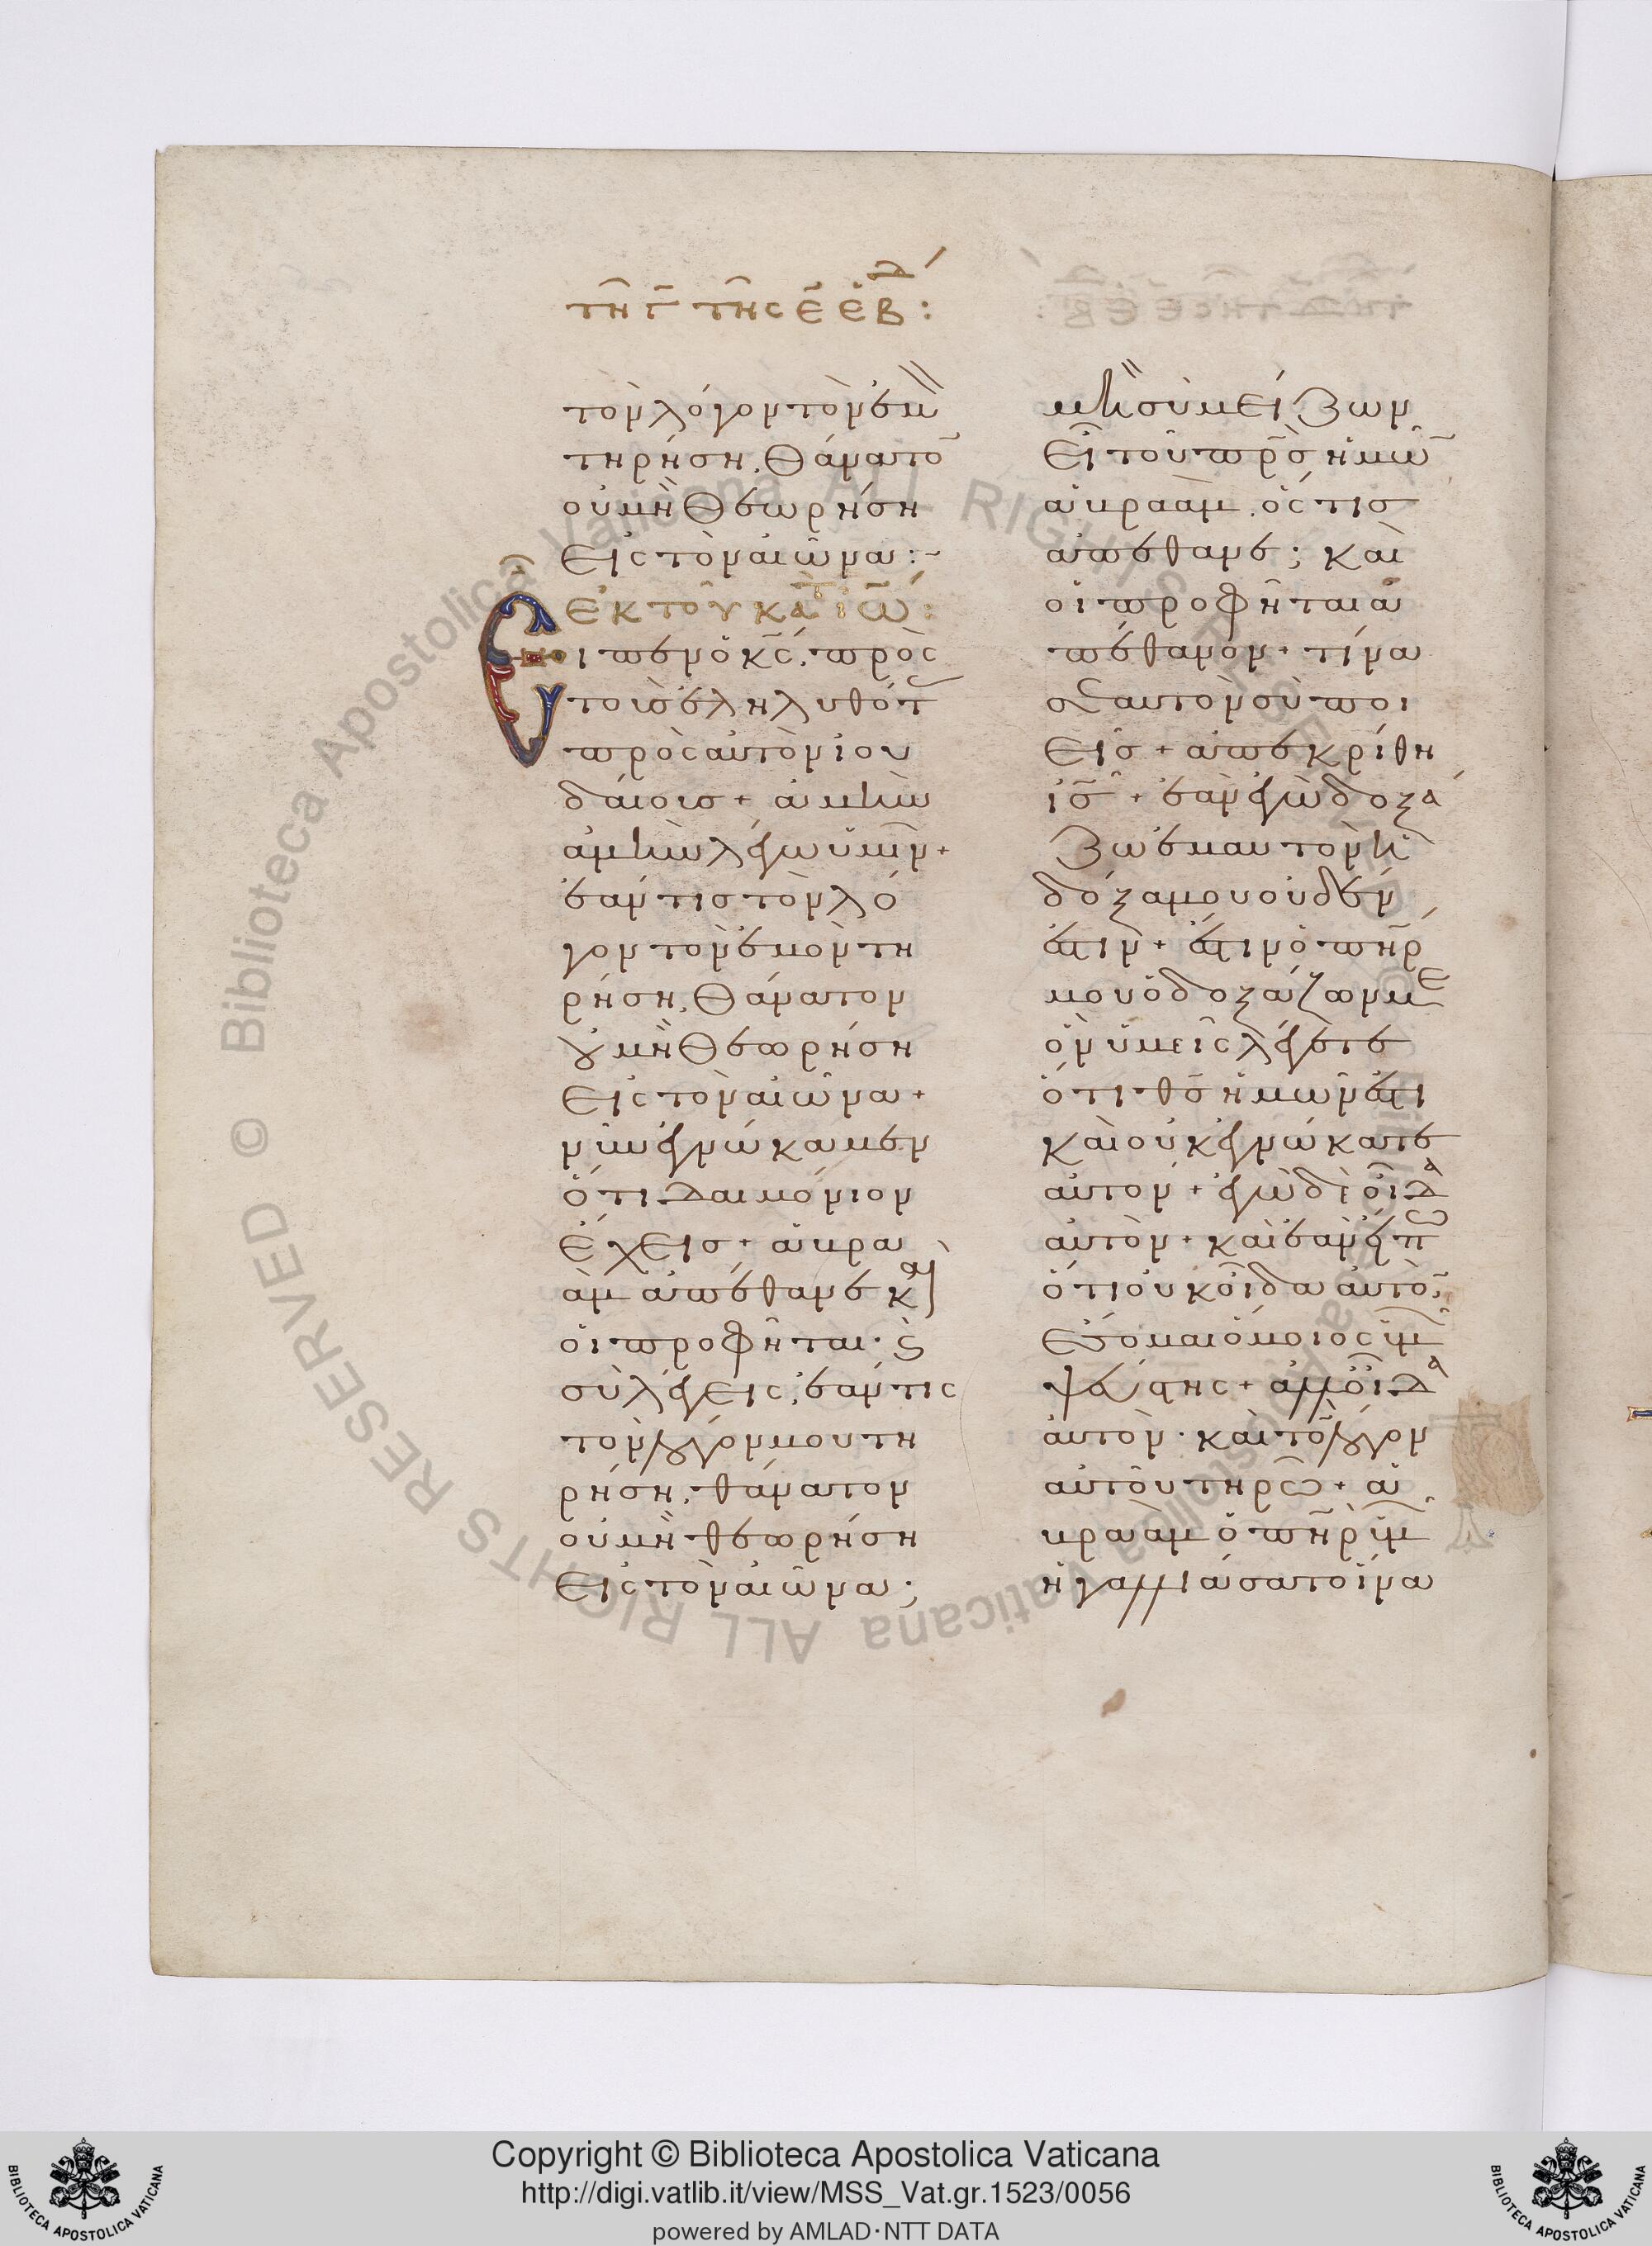 τῆ γ̅ τῆς ε̅ ἑβδ:
τον λόγον τὸν ἐμ
τηρήση, θάνατο̅
οὐ μὴ θεωρήση
εἰς τὸν αἰῶνα:~
ἐκ τοῦ κατ ἰω̅:
Εἶπεν ὁ κ̅ς, πρὸς
τοὺς ἐληλυθότ
πρὸς αὐτὸν ἰου
δαίοις + ἀμὴν
ἀμὴν λέγω ὑμῖν +
ἐάν τις τὸν λό
γον τὸν ἐμὸν τη
ρήση, θάνατον
οὐ μὴ θεωρήση
εἰς τὸν αἰῶνα +
νῦν ἐγνώκαμεν
ὅτι δαιμόνιον
ἔχεις + ἀβρα
ὰμ ἀπέθανε καὶ
οἱ προφῆται· ϛ
σὺ λέγεις, ἐάν τις
τὸν λόγον μου τη
ρήση, θάνατον
οὐ μὴ θεωρήση
εἰς τὸν αἰῶνα;
μὴ σὺ μείζων
εἶ τοῦ π̅ρ̅ς ἡμῶ̅
ἀβραὰμ. ὅς τις
ἀπέθανε; καὶ
οἱ προφῆται ἀ
πέθανον + τίνα
σεαυτὸν σὺ ποι
εῖς + ἀπεκρίθη
ἰ̅ς + ἐὰν ἐγὼ δοξά
ζω ἐμαυτὸν ἡ
δόξα μου οὐδέν
ἐστιν + ἔστιν ὁ π̅η̅ρ
μου ὁ δοξάζων με
ὃν ὑμεῖς λέγετε
ὅτι θ̅ς ἡμῶν ἐστι
καὶ οὐκ ἐγνώκατε
αὐτον + ἐγὼ δὲ οἶδα
αὐτὸν + καὶ ἐὰν εἴπω
ὅτι οὐκ οἶδα αὐτό̅,
ἔσομαι ὅμοιος ὑμ̅
ψεύστης + ἀλλ οἶδα
αὐτὸν· καὶ τὸ̅ λόγον
αὐτοῦ τηρῶ + ἀ
βραὰμ ὁ π̅η̅ρ ὑμ̅
ἠγαλλιάσατο ἵνα
Copyright © Biblioteca Apostolica Vaticana
http://digi.vatlib.it/view/MSS_Vat.gr.1523/0056
powered by AMLAD·NTT DATA